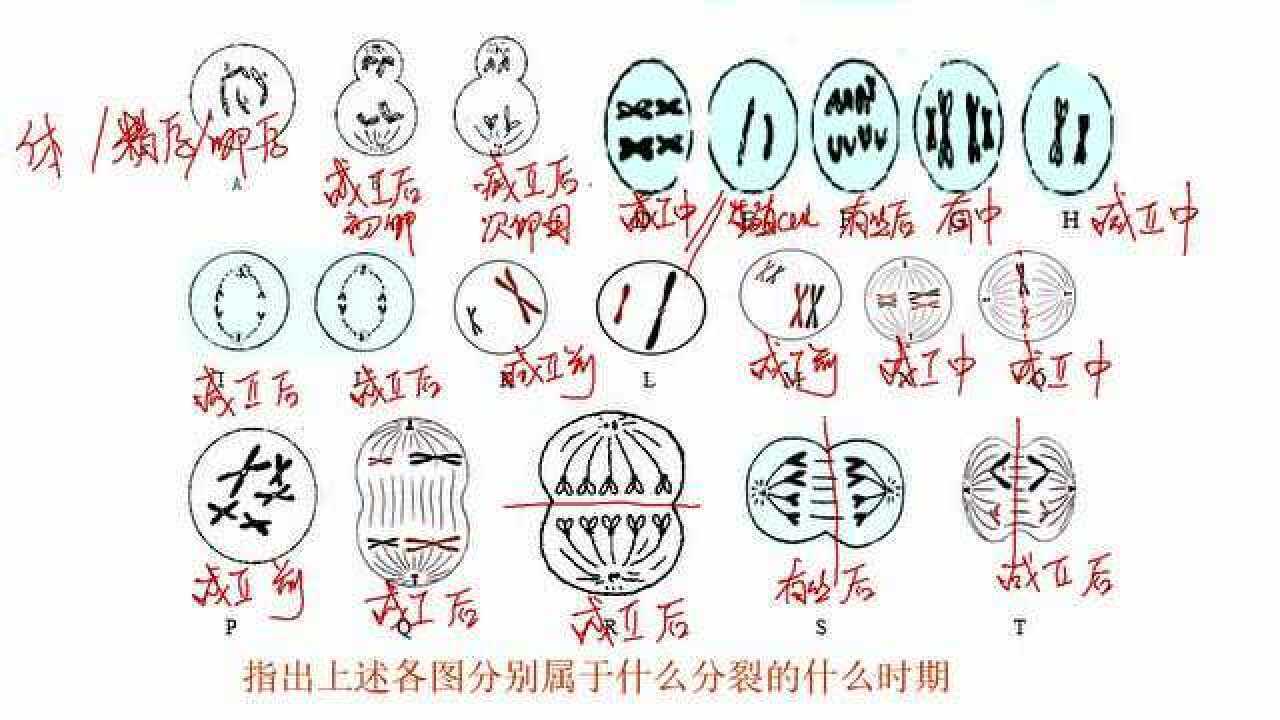 体/精原/卵原
A
减Ⅱ后
初卵
减Ⅱ后
次卵母
减Ⅰ中
生殖cell
有丝后
有中
H 减Ⅱ中
减Ⅱ后
减Ⅱ后
减Ⅱ前
L
减Ⅰ前
减Ⅰ中
减Ⅱ中
减Ⅱ前
减Ⅰ后
减Ⅱ后
有丝后
减Ⅱ后
P
Q
R
S
T
指出上述各图分别属于什么分裂的什么时期